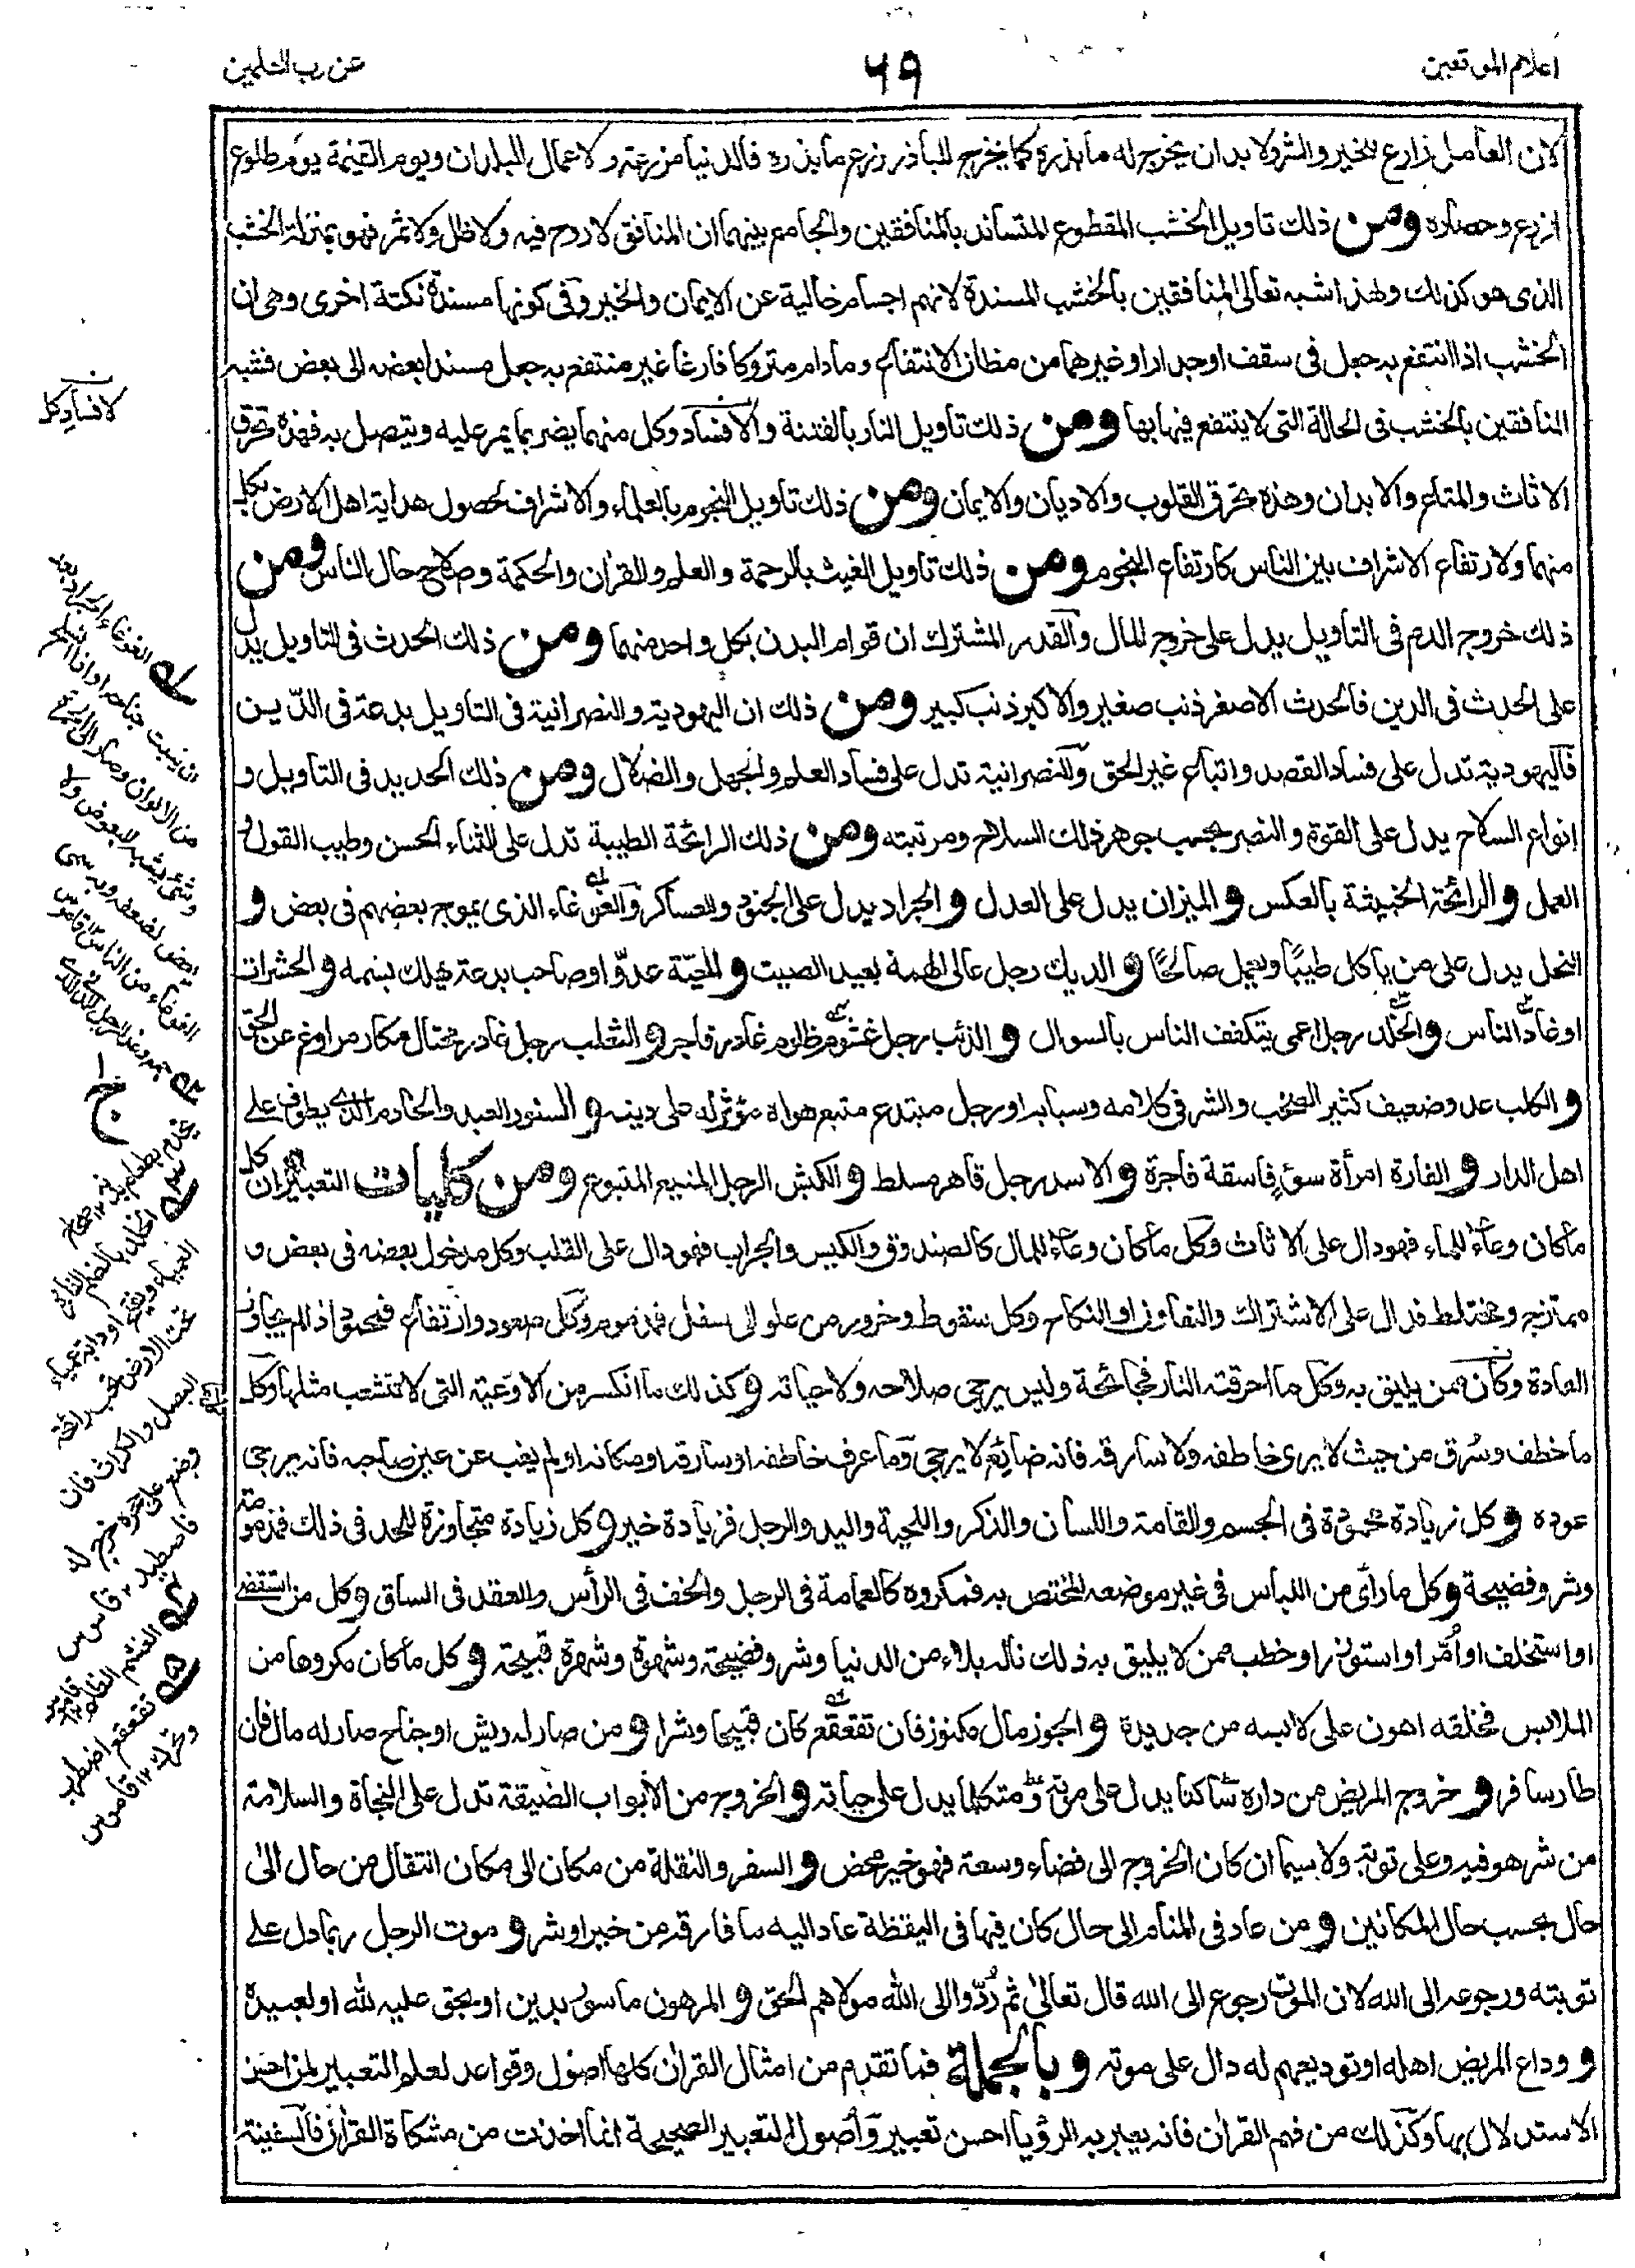 اعلام الموقعين
٦٩
عن رب العلمين
لان العامل زارع للخير والشر ولا بد ان يخرج له ما بذره كما يخرج للباذر زرع ما بذره فالدنيا مزرعة والاعمال البذر ان ويوم القيمة يوم طلوع
الزرع وحصاده ومن ذلك تاويل الخشب المقطوع المتساند بالمنافقين والجامع بينهما ان المنافق لا روح فيه ولا ظل ولا ثمر فهو بمنزلة الخشب
الذى هو كذلك ولهذا شبه تعالى المنافقين بالخشب المسندة لانهم اجسام خالية عن الايمان والخير وفى كونها مسندة نكتة اخرى وهى ان
الخشب اذا انتفع به جعل فى سقف او جدار او غيرهما من مظان الانتفاع وما دام متروكا فارغا غير منتفع به جعل مسندا بعضه الى بعض فشبه
المنافقين بالخشب فى الحالة التى لا ينتفع فيها بها ومن ذلك تاويل النار بالفتنة والافساد وكل منهما يضر بما يمر عليه ويتصل به فهذه تحرق
الاثاث والمتاع والابدان وهذه تحرق القلوب والاديان والايمان ومن ذلك تاويل النجوم بالعلماء والاشراف لحصول هداية اهل الارض بكل
منهما ولارتفاع الاشراف بين الناس كارتفاع النجوم ومن ذلك تاويل الغيث بالرحمة والعلم والقران والحكمة وصلاح حال الناس ومن
ذلك خروج الدم فى التاويل يدل على خروج المال والقدر المشترك ان قوام البدن بكل واحد منهما ومن ذلك الحدث فى التاويل يدل
على الحدث فى الدين فالحدث الاصغر ذنب صغير والاكبر ذنب كبير ومن ذلك ان اليهودية والنصرانية فى التاويل بدعة فى الدين
فاليهودية تدل على فساد القصد واتباع غير الحق والنصرانية تدل على فساد العلم والجهل والضلال ومن ذلك الحديد فى التاويل و
انواع السلاح يدل على القوة والنصر بحسب جوهر ذلك السلاح ومرتبته ومن ذلك الرائحة الطيبة تدل على الثناء الحسن وطيب القول و
العمل والرائحة الخبيثة بالعكس والميزان يدل على العدل والجراد يدل على الجنود والعساكر والغوغاء الذى يموج بعضهم فى بعض و
النحل يدل على من ياكل طيبا ويعمل صالحا والديك رجل عالى الهمة بعيد الصيت والحية عدو او صاحب بدعة يهلك بسمه والحشرات
اوغاد الناس والخلد رجل اعمى يتكفف الناس بالسوال والذئب رجل غشوم ظلوم غادر فاجر والثعلب رجل غادر محتال مكار مراوغ عن الحق
والكلب عدو ضعيف كثير الصخب والشر فى كلامه وسبابه او رجل مبتدع متبع هواه مؤثر له على دينه والسنور العبد والخادم الذى يطوف على
اهل الدار والفارة امرأة سوء فاسقة فاجرة والاسد رجل قاهر مسلط والكبش الرجل المنيع المتبوع ومن كليات التعبير ان كل
ما كان وعاء للماء فهو دال على الاثاث وكل ما كان وعاء للمال كالصندوق والكيس والجراب فهو دال على القلب وكل مدخول بعضه فى بعض و
ممتزج ومختلط فدال على الاشتراك والتعاون او النكاح وكل سقوط وخرور من علو الى سفل فمذموم وكل صعود وارتفاع فمحمود اذا لم يجاوز
العادة وكان ممن يليق به وكل ما احرقته النار فجائحة وليس يرجى صلاحه ولا حياته وكذلك ما انكسر من الاوعية التى لا تنشعب مثلها وكل
ما خطف وسرق من حيث لا يرى خاطفه ولا سارقه فانه ضائع لا يرجى وما عرف خاطفه او سارقه او مكانه او لم يغب عن عين صاحبه فانه يرجى
عوده وكل زيادة محمودة فى الجسم والقامة واللسان والذكر واللحية واليد والرجل فزيادة خير وكل زيادة متجاوزة للحد فى ذلك فمذمومة
وشر وفضيحة وكل ما راى من اللباس فى غير موضعه المختص به فمكروه كالعمامة فى الرجل والخف فى الرأس والعقد فى الساق وكل من استقضى
او استخلف او امر او استوزر او خطب ممن لا يليق به ذلك ناله بلاء من الدنيا وشر وفضيحة وشهوة وشهرة قبيحة وكل ما كان مكروها من
الملابس فخلقه اهون على لابسه من جديده والجوز مال مكنوز فان تقعقع كان قبيحا وشرا ومن صار له ريش او جناح صار له مال فان
طار سافر وخروج المريض من داره ساكتا يدل على موته ومتكلما يدل على حياته والخروج من الابواب الضيقة تدل على النجاة والسلامة
من شر هو فيه وعلى توبة ولا سيما ان كان الخروج الى فضاء وسعة فهو خير محض والسفر والنقلة من مكان الى مكان انتقال من حال الى
حال بحسب حال المكانين ومن عاد فى المنام الى حال كان فيها فى اليقظة عاد اليه ما فارقه من خير او شر وموت الرجل ربما دل على
توبته ورجوعه الى الله لان الموت رجوع الى الله قال تعالى ثم ردوا الى الله مولاهم الحق والمرهون ماسور بدين او بحق عليه لله او لعبيده
ووداع المريض اهله او توديعهم له دال على موته وبالجملة فما تقدم من امثال القران كلها اصول وقواعد لعلم التعبير لمن احسن
الاستدلال بها وكذلك من فهم القران فانه يعبر به الرؤيا احسن تعبير واصول التعبير الصحيحة انما اخذت من مشكاة القران فالسفينة
لافساد كل
الغوغاء الجراد بعد
ان ينبت جناحه
من الالوان وصار الى
وشئ يشبه البعوض ولا
يعض لضعفه وبه سمى
الغوغاء من الناس ١٢ قاموس
يخدم بطعام بطنه
الخلد بالضم
او دابة عمياء
تحت الارض تحب رائحة
البصل والكراث فان
وضع على جحره خرج له
فاصطيد ١٢ قاموس
الغشم الظلم
تقعقع اضطرب
وتحرك ١٢ قاموس